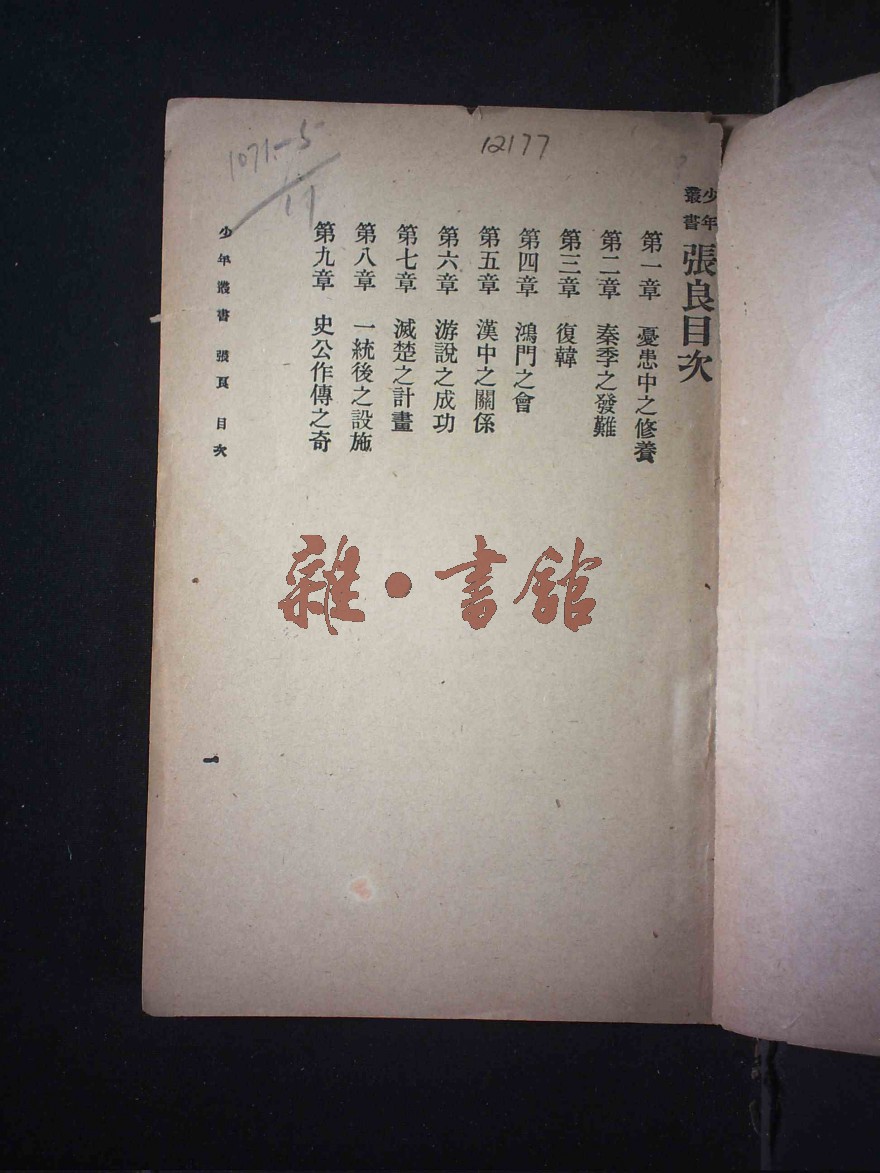 12177
1071.-5
11
少年叢書 張良目次
第一章 憂患中之修養
第二章 秦季之發難
第三章 復韓
第四章 鴻門之會
第五章 漢中之關係
第六章 游說之成功
第七章 滅楚之計畫
第八章 一統後之設施
第九章 史公作傳之奇
少年叢書 張良 目次
一
雜·書館